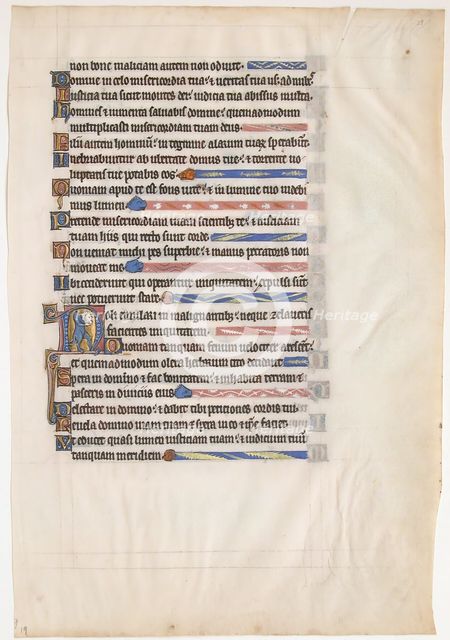 non bonc maliciam autem non odiuit.
Domine in celo misericordia tua: & ueritas tua usq; ad nub
Iusticia tua sicut montes dei: iudicia tua abissus multa.
Homines & iumenta saluabis domine: quemadmodum
multiplicasti misericordiam tuam deus.
Filii autem hominum: in tegmine alarum tuarum sperabunt.
Inebriabuntur ab ubertate domus tue: & torrente uo
luptatis tue potabis eos.
Quoniam apud te est fons uite: & in lumine tuo uidebi
mus lumen.
Pretende misericordiam tuam scientibus te: & iusticiam
tuam hiis qui recto sunt corde.
Non ueniat michi pes superbie: & manus peccatoris non
moueat me.
Ibi ceciderunt qui operantur iniquitatem: expulsi sunt
nec potuerunt stare.
Noli emulari in malignantibus: neque zelaueris
facientes iniquitatem.
Quoniam tanquam fenum uelociter arescent:
et quemadmodum olera herbarum cito decident.
Spera in domino & fac bonitatem: & inhabita terram &
pasceris in diuiciis eius.
Delectare in domino: & dabit tibi peticiones cordis tui.
Reuela domino uiam tuam & spera in eo: & ipse faciet.
Et educet quasi lumen iusticiam tuam: & iudicium tuum
tanquam meridiem.
19
Heritage